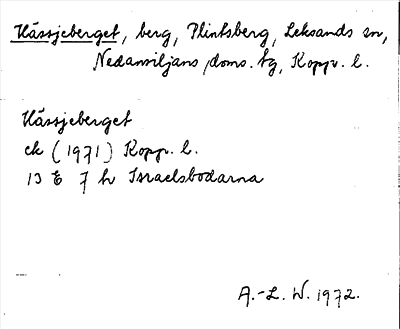 Hässjeberget, berg, Plintsberg, Leksands sn,
Nedansiljans doms. tg, Kopp. l.
Hässjeberget
ek (1971) Kopp. l.
13 E 7 h Israelsbodarna
A.-L. W. 1972.